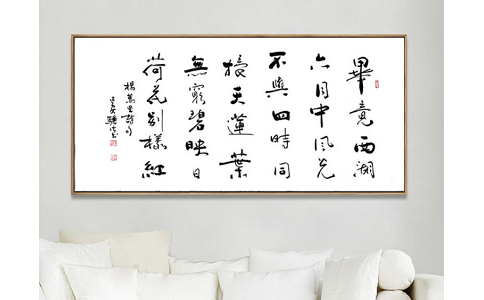 畢竟西湖
六月中風光
不與四時同
接天蓮葉
無窮碧映日
荷花別樣紅
楊萬里詩句